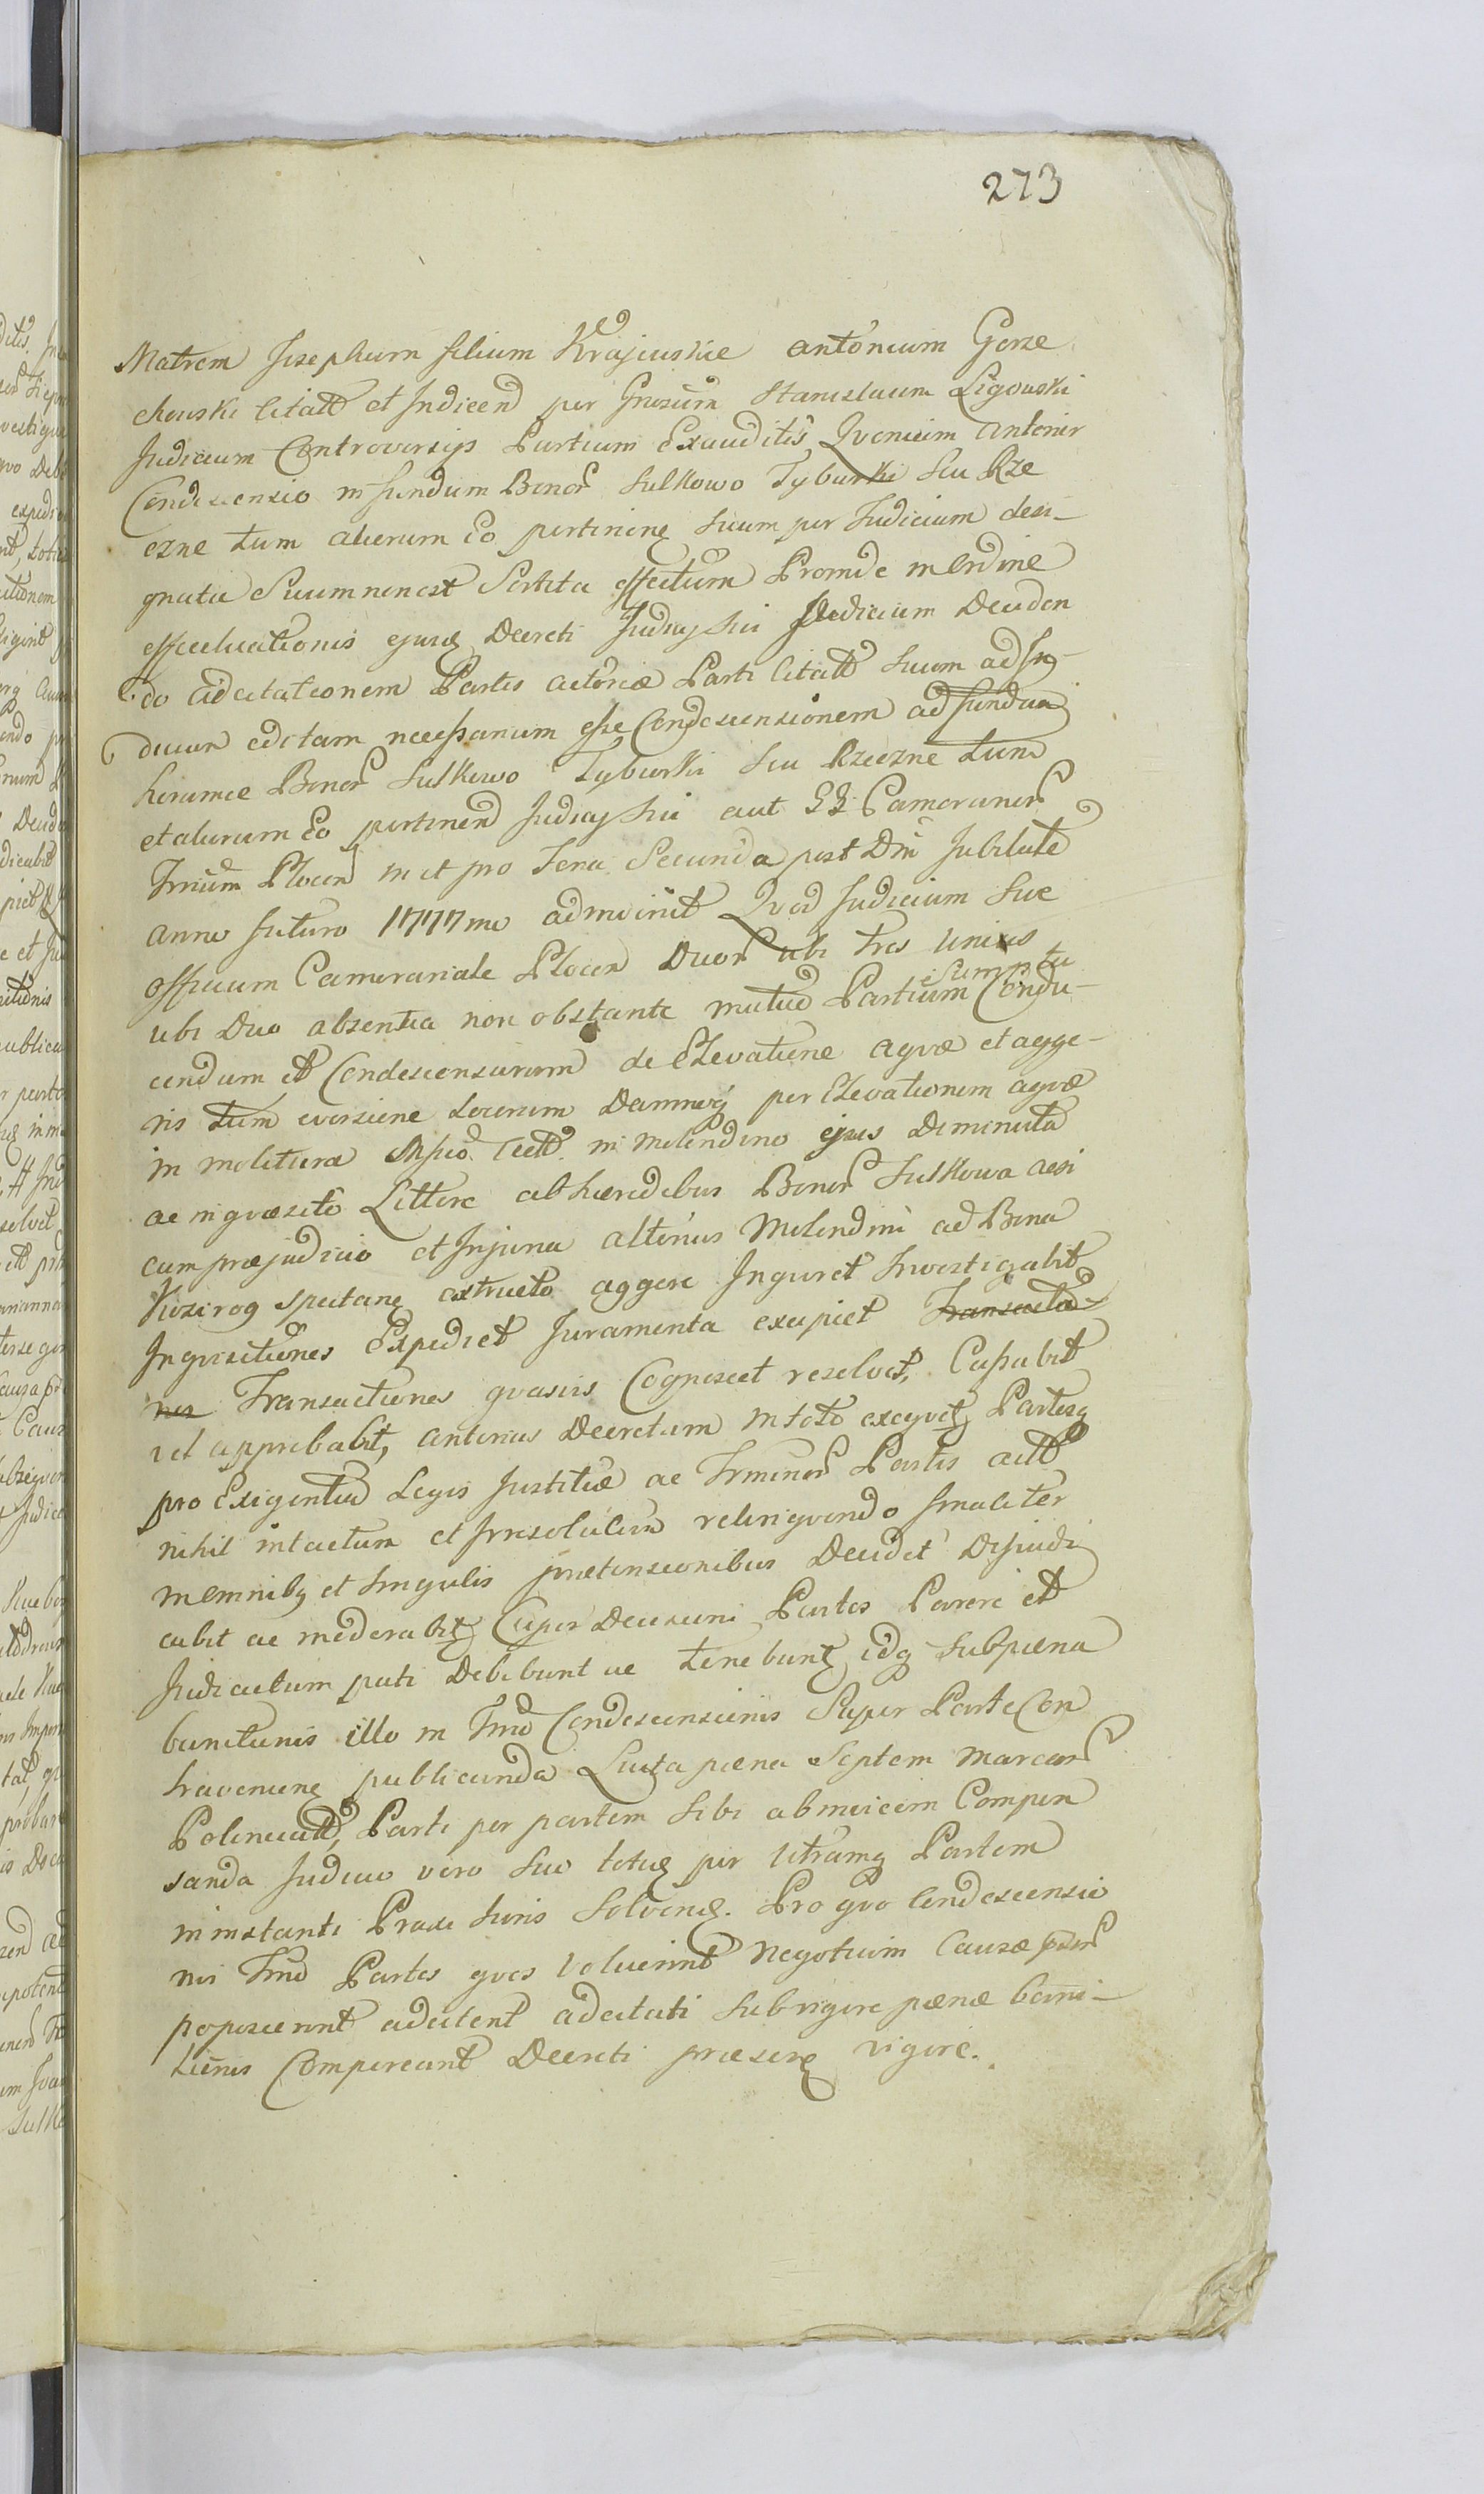 273
Matrem Josephum filium Krajewskie Antonium Gorze
chowski Citatt et Indicend per Gnosum Stanislaum Ligowski
Judicium Controversijs Partium Exauditis Qvoniam anterior
Condescensio in fundum Bonor Sulkowo Tyburki seu Rze
czne tum aliorum Eo pertinenq suum per Judicium desi-
gnata Suum non est Sortita effectum Proinde in Ordine
effectuationis ejusq Decreti Judicij sui Judicium Deciden
do ad citationem Partis actoreæ Parti Citatt suum ad Ju-
dicium editam necessariam esse Condescensionem ad fundum
horumce Bonor Sulkowo Tyburki seu Rzeczne tum
et aliorum Eo pertinend Judicij sui aut GG Camerarior
Trium Plocen in et pro Feria Secunda post Dm Jubilate
anno futuro 1777mo adinvenit Qvod Judicium sive
officium Camerariale Plocen Duor ubi Tres Unius
ubi Duo absentia non obstante mutuo Partium Sumptu Condu-
cendum et Condescensurum de Elevatione aqvæ et agge-
ris tum eversione locorum Damnorq per Elevationem aqvæ
in molitura Mfico Actt. in Molendino ejus Diminuta
ac inqvæsito Littore ab hæredibus Bonor Sulkowa acsi
cum præjudicio et Injuria alterius Molendini ad Bona
Kozirog spectanq extructo aggere Inqviret Investigabit
Inqvisitiones Expediet Juramenta excipiet Transactio
nes Transactiones qvasvis Cognoscet resolvet, Cassabit
vel approbabit, anterius Decretum in toto exeqvetq Partesq
pro Exigentia Legis Justitiæ ac Terminor Partis actt
nihil intactum et Irresolutum relinqvendo finaliter
in Omnibq et singulis prætensionibus Decidet Dijudi
cabit ac moderabitq Cujus Decisioni Partes Parere et
Judicatum pati Debebunt ac tenebuntq idq sub pæna
banitionis illo in Tmo Condescensionis Super Parte Con
traveniene publicanda Luita pæna Septem Marcar
Polonicatt, Parti per partem sibi ab invicem Compen
sanda Judicio vero suo totieq per Utramq Partem
in instanti Prosec Juris Solvendq. Pro qvo Condescensio
nis Tmo Partes qvos Voluerint Negotium Causæ psntr
poposcerint adcitent adcitati sub vigore pænæ bani-
tionis Compareant Decreti præsenq vigore.